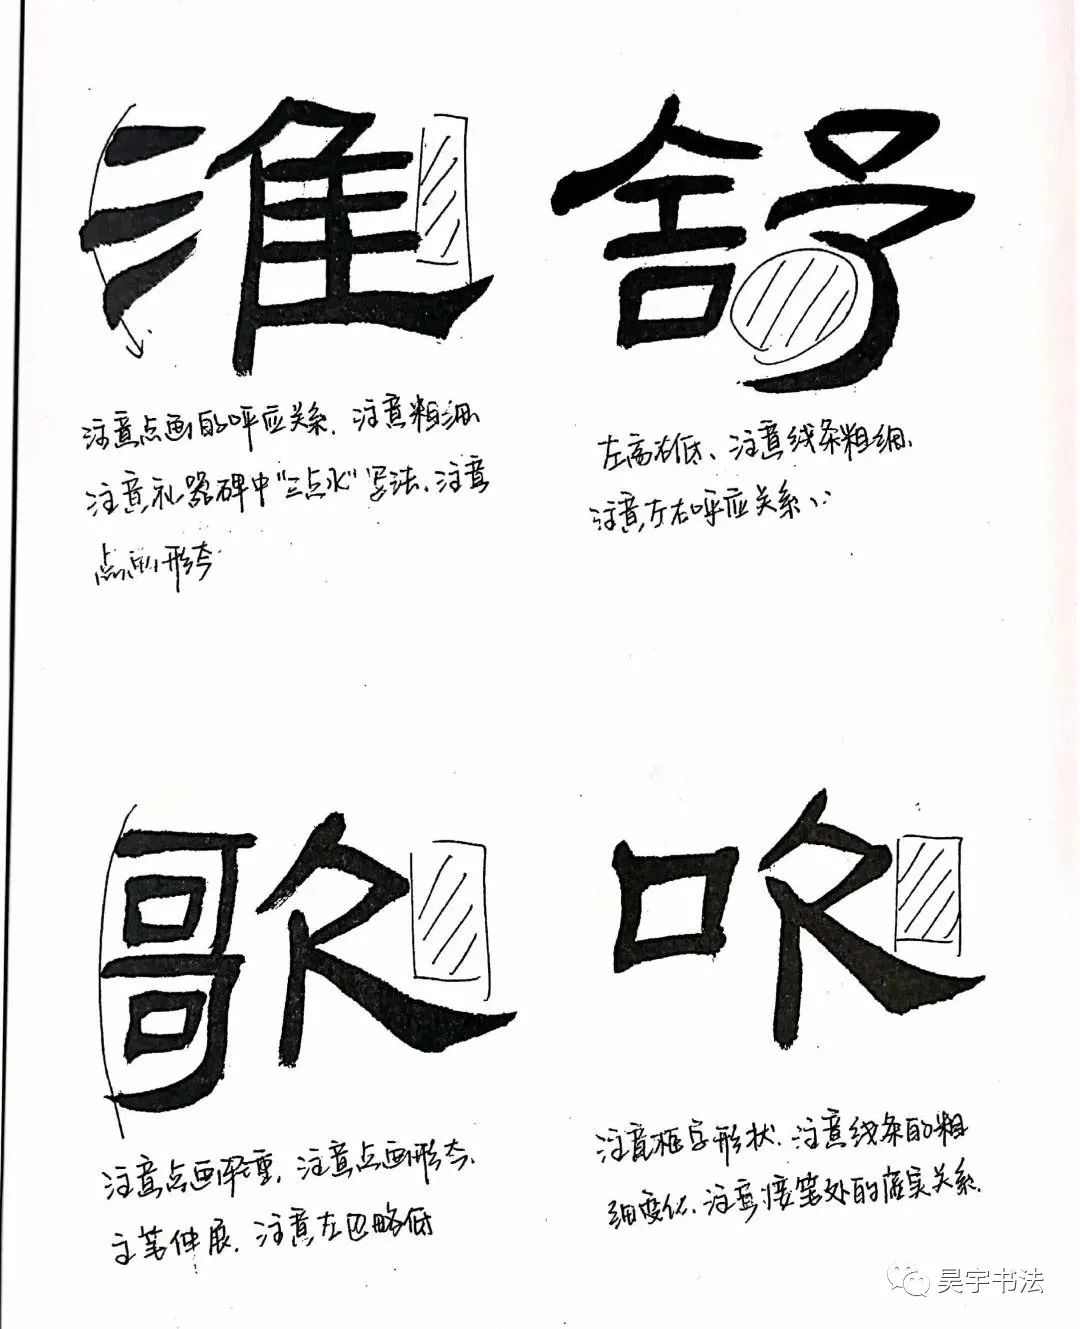 淮 舒
注意点画的呼应关系、注意粗细
注意礼器碑中"三点水"写法、注意
点的形态
左高右低、注意线条粗细、
注意左右呼应关系
歌 吹
注意点画轻重、注意点画形态、
主笔伸展、注意左边略低
注意框字形状、注意线条的粗
细变化、注意接笔处的虚实关系
昊宇书法